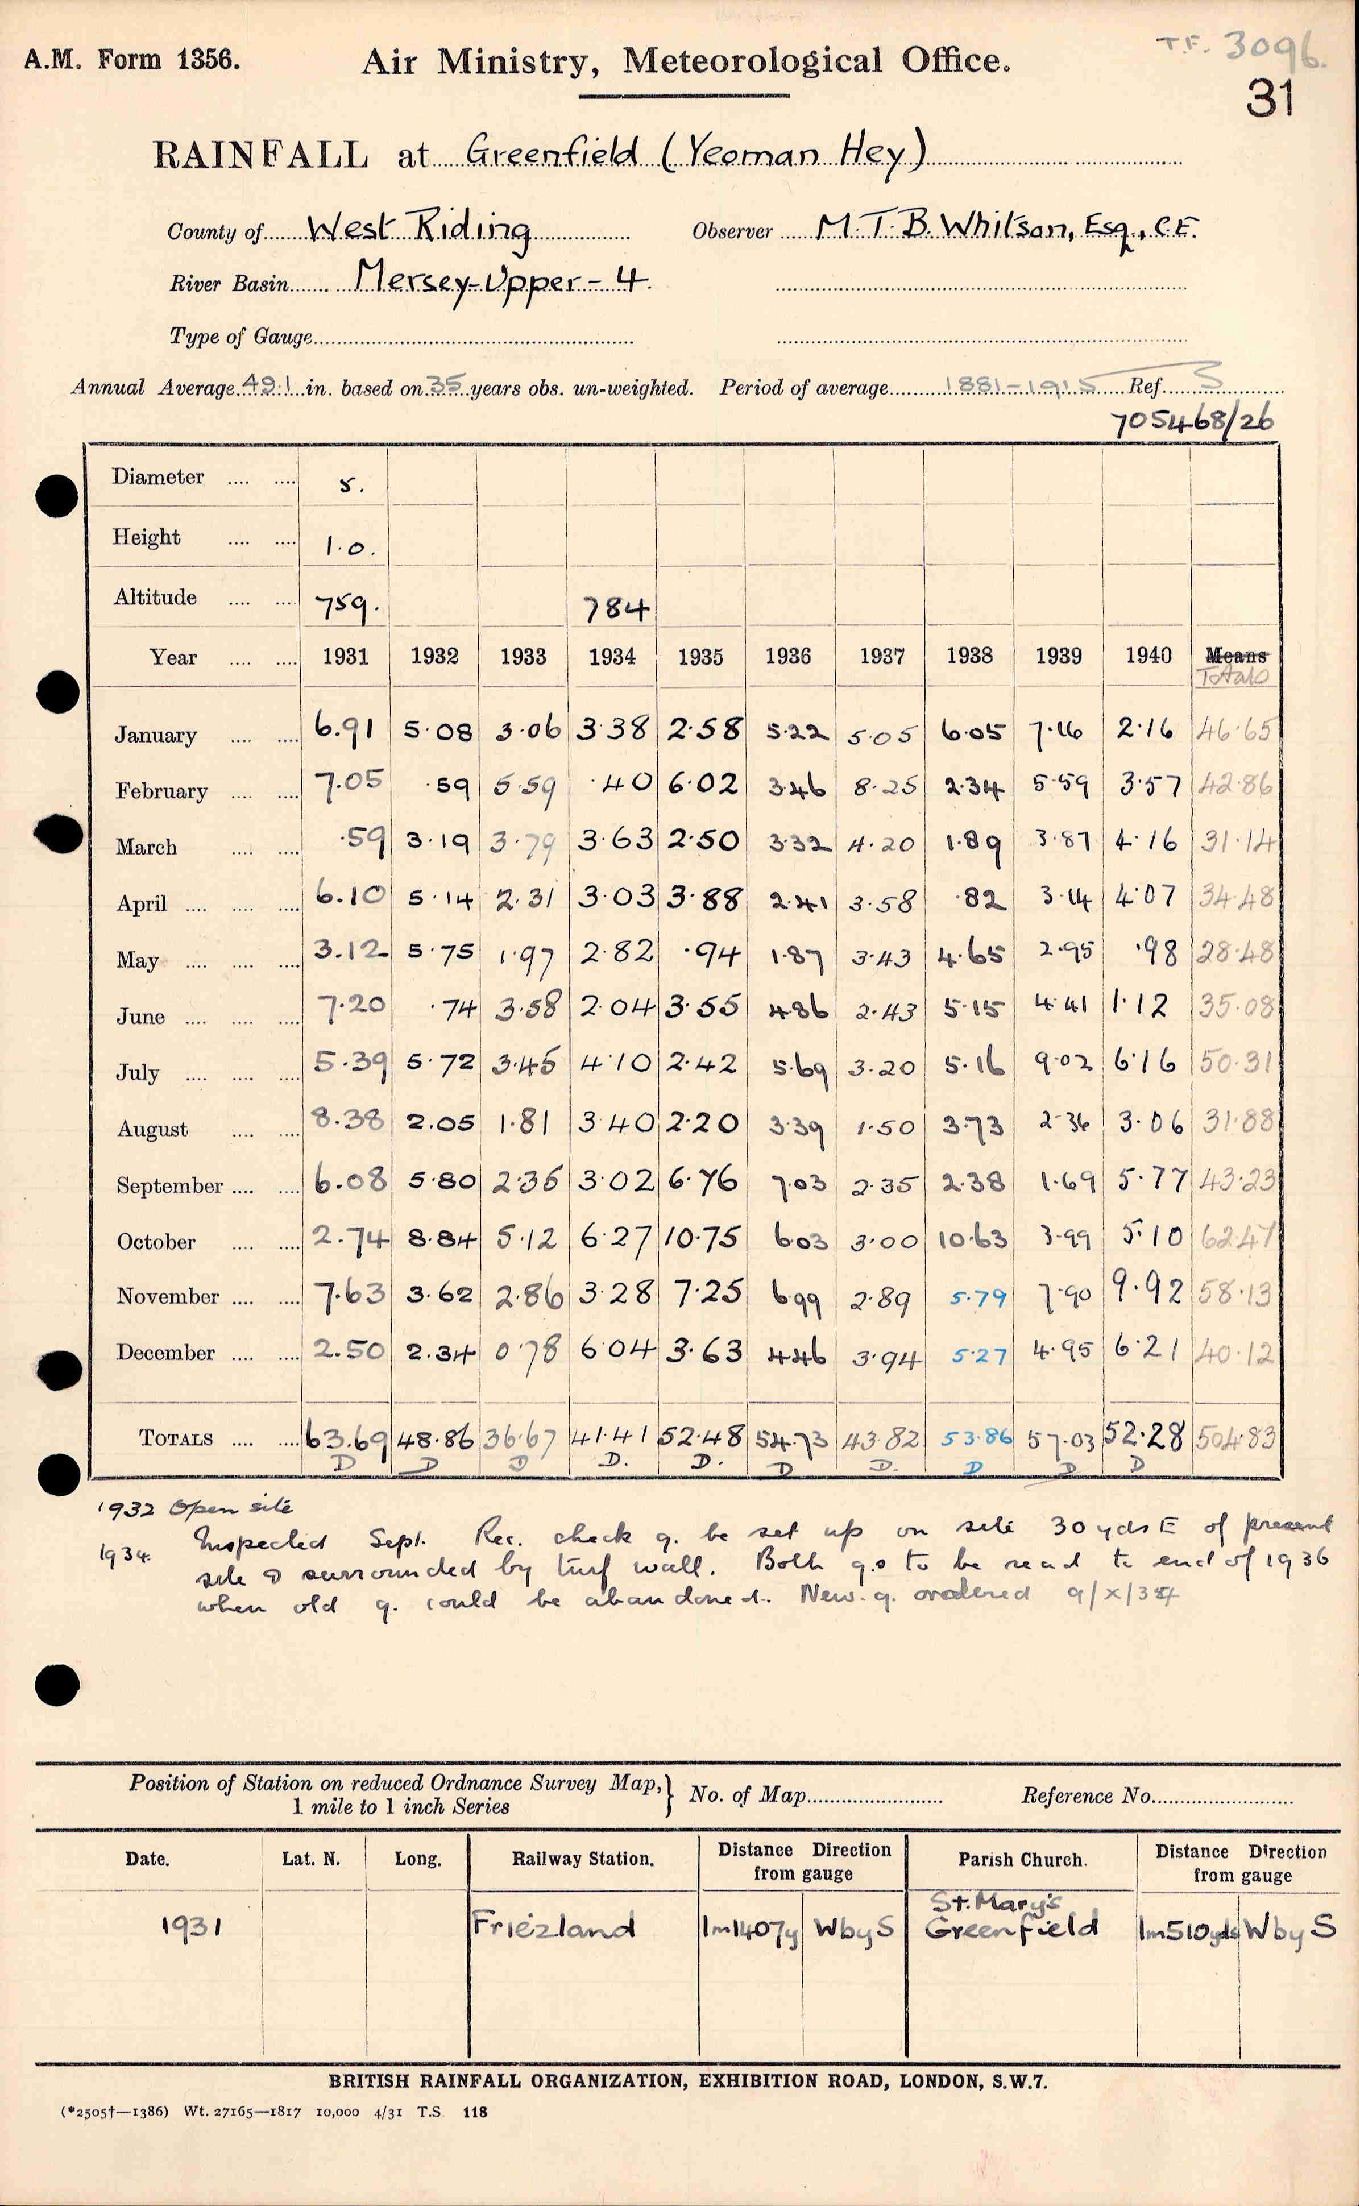 T.F. 3096.
A.M. Form 1356. Air Ministry, Meteorological Office.
31
RAINFALL at Greenfield (Yeoman Hey)
County of West Riding Observer M.T.B. Whitson, Esq., C.E.
River Basin Mersey-Upper-4.
Type of Gauge
Annual Average 49.1 in. based on 35 years obs. un-weighted. Period of average 1881-1915 Ref. S
705468/26
Diameter 5.
Height 1.0.
Altitude 759. 784
Year 1931 1932 1933 1934 1935 1936 1937 1938 1939 1940 Means
Totals
January 6.91 5.08 3.06 3.38 2.58 5.22 5.05 6.05 7.16 2.16 46.65
February 7.05 .59 5.59 .40 6.02 3.46 8.25 2.34 5.59 3.57 42.86
March .59 3.19 3.79 3.63 2.50 3.32 4.20 1.89 3.87 4.16 31.14
April 6.10 5.14 2.31 3.03 3.88 2.41 3.58 .82 3.14 4.07 34.48
May 3.12 5.75 1.97 2.82 .94 1.87 3.43 4.65 2.95 .98 28.48
June 7.20 .74 3.58 2.04 3.55 4.86 2.43 5.15 4.41 1.12 35.08
July 5.39 5.72 3.45 4.10 2.42 5.69 3.20 5.16 9.02 6.16 50.31
August 8.38 2.05 1.81 3.40 2.20 3.39 1.50 3.73 2.36 3.06 31.88
September 6.08 5.80 2.35 3.02 6.76 7.03 2.35 2.38 1.69 5.77 43.23
October 2.74 8.84 5.12 6.27 10.75 6.03 3.00 10.63 3.99 5.10 62.47
November 7.63 3.62 2.86 3.28 7.25 6.99 2.89 5.79 7.90 9.92 58.13
December 2.50 2.34 0.78 6.04 3.63 4.46 3.94 5.27 4.95 6.21 40.12
TOTALS 63.69 48.86 36.67 41.41 52.48 54.73 43.82 53.86 57.03 52.28 504.83
D D D D. D. D D. D D D
1932 Open site
1934. Inspected Sept. Rec. check g. be set up on site 30 yds E of present
site & surrounded by turf wall. Both g.s to be read to end of 1936
when old g. could be abandoned. New g. ordered 9/X/34
Position of Station on reduced Ordnance Survey Map,} No. of Map Reference No.
1 mile to 1 inch Series
Date. Lat. N. Long. Railway Station. Distance Direction from gauge Parish Church. Distance Direction from gauge
St. Mary's
1931 Friezland 1m1407y W by S Greenfield 1m510yds W by S
BRITISH RAINFALL ORGANIZATION, EXHIBITION ROAD, LONDON, S.W.7.
(*2505†—1386) Wt. 27165—1817 10,000 4/31 T.S. 118